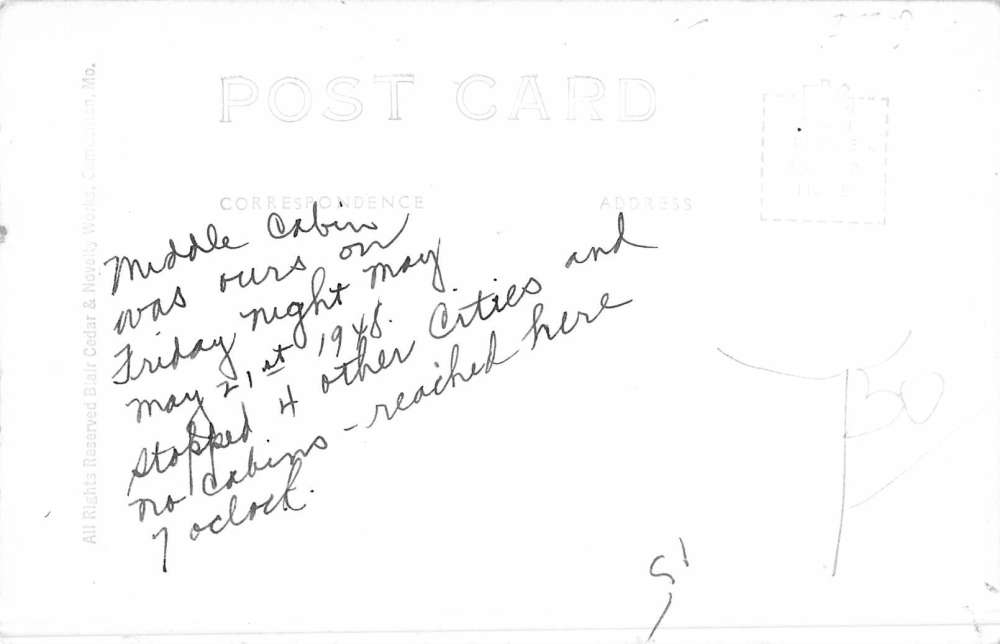 POST CARD
CORRESPONDENCE
ADDRESS
All Rights Reserved Blair Cedar & Novelty Works, Camdenton, Mo.
Middle Cabin
was ours on
Friday night May
May 21st 1948.
Stopped 4 other Cities and
no cabins - reached here
7 oclock.